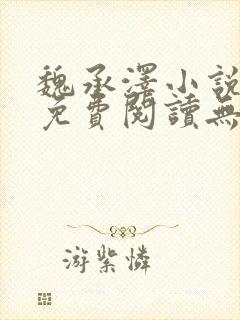 魏承澤小說
免費閱讀無
游紫憐